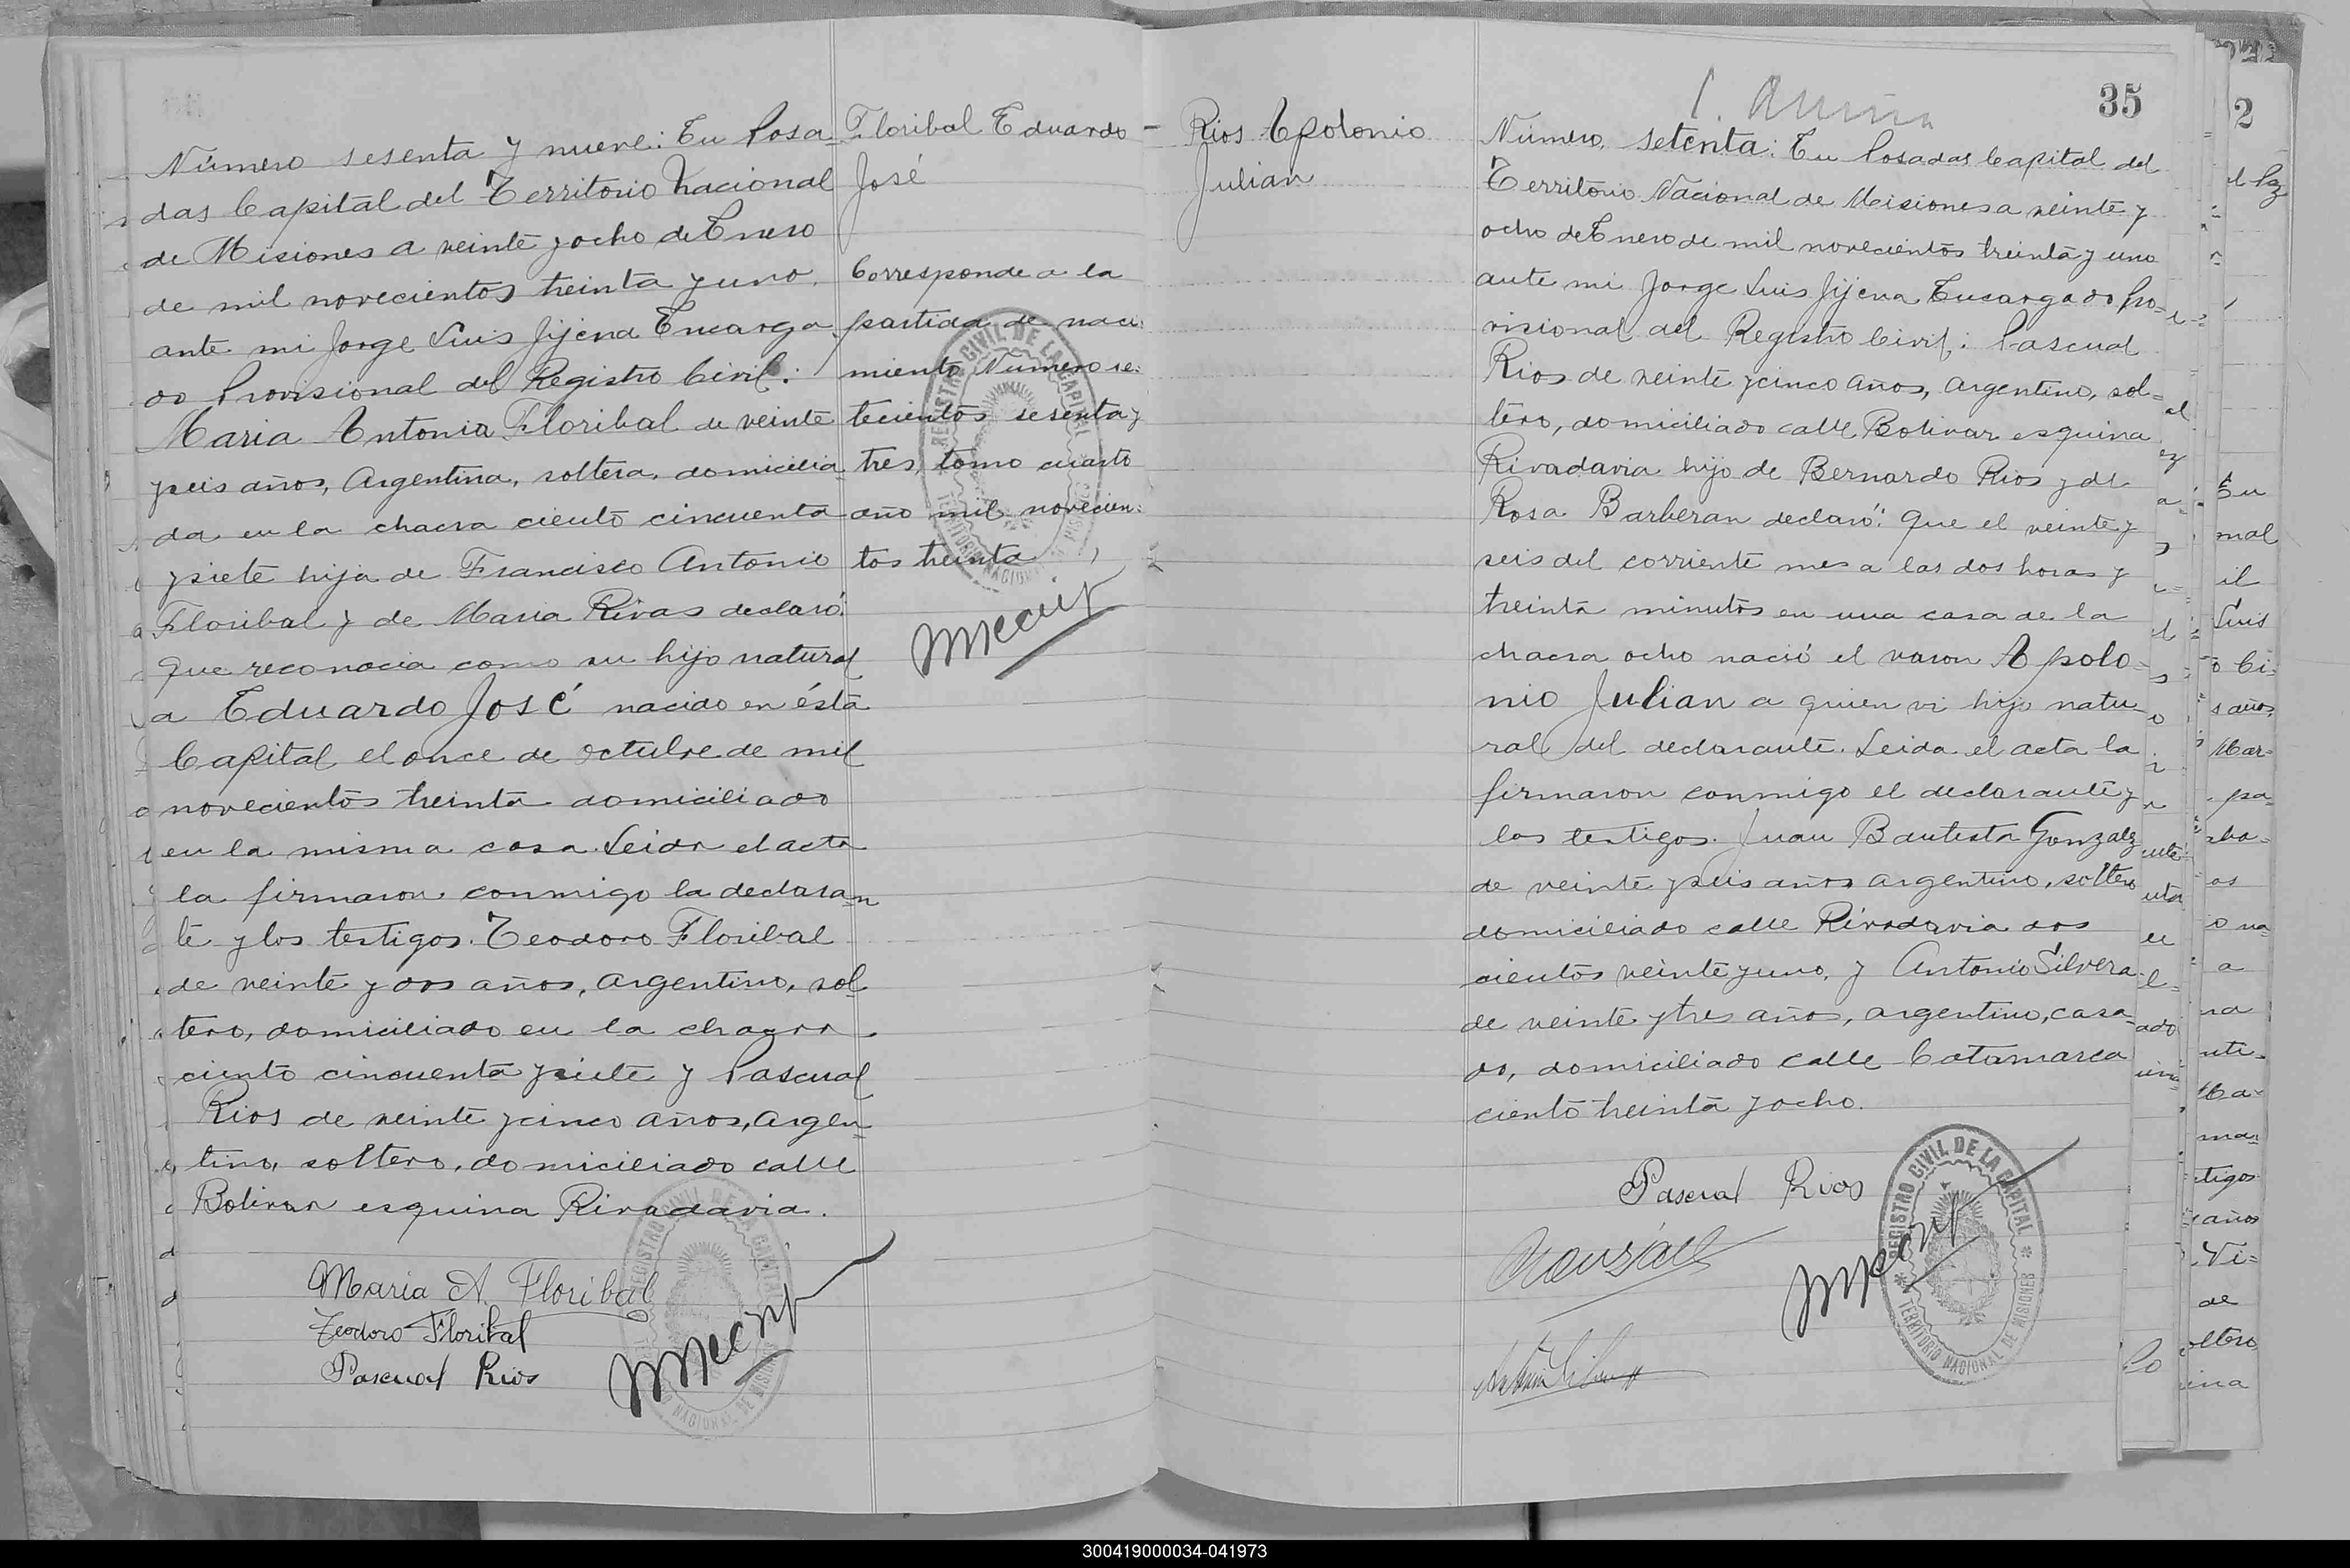 Número sesenta y nueve: En Posa-
das Capital del Territorio Nacional
de Misiones a veinte y ocho de Enero
de mil novecientos treinta y uno.
ante mi Jorge Luis Jijena Encarga
do Provisional del Registro Civil:
Maria Antonia Floribal de veinte
y seis años, Argentina, soltera, domicilia
da en la chacra ciento cincuenta
y siete hija de Francisco Antonio
Floribal y de Maria Rivas declaró:
Que reconocia como su hijo natural
a Eduardo José nacido en ésta
Capital el once de octubre de mil
novecientos treinta domiciliado
en la misma casa. Leida el acta
la firmaron conmigo la declaran
te y los testigos. Teodoro Floribal
de veinte y dos años, argentino, sol
tero, domiciliado en la chacra
ciento cincuenta y siete y Pascual
Rios de veinte y cinco años, argen-
tino, soltero, domiciliado calle
Bolivar esquina Rivadavia.
Maria A. Floribal
Teodoro Floribal
Pascual Rios
REGISTRO CIVIL DE LA CAPITAL
TERRITORIO NACIONAL DE MISIONES
Floribal Eduardo
José
Corresponde a la
partida de naci-
miento Número se-
tecientos sesenta y
tres, tomo cuarto
año mil novecien-
tos treinta
REGISTRO CIVIL DE LA CAPITAL
TERRITORIO NACIONAL DE MISIONES
Rios Apolonio
Julian
35
Número setenta: En Posadas Capital del
Territorio Nacional de Misiones a veinte y
ocho de Enero de mil novecientos treinta y uno
ante mi Jorge Luis Jijena Encargado Pro-
visional del Registro Civil: Pascual
Rios de veinte y cinco años, argentino, sol-
tero, domiciliado calle Bolivar esquina
Rivadavia hijo de Bernardo Rios y de
Rosa Barberan declaró: Que el veinte y
seis del corriente mes a las dos horas y
treinta minutos en una casa de la
chacra ocho nació el varon Apolo-
nio Julian a quien vi hijo natu
ral del declarante. Leida el acta la
firmaron conmigo el declarante y
los testigos. Juan Bautista Gonzalez
de veinte y seis años argentino, soltero
domiciliado calle Rivadavia dos
cientos veinte y uno, y Antonio Silvera
de veinte y tres años, argentino, casa-
do, domiciliado calle Catamarca
ciento treinta y ocho.
Pascual Rios
REGISTRO CIVIL DE LA CAPITAL
TERRITORIO NACIONAL DE MISIONES
2
300419000034-041973